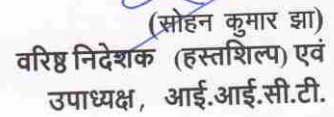 (सोहन कुमार झा)
वरिष्ठ निदेशक (हस्तशिल्प) एवं
उपाध्यक्ष, आई.आई.सी.टी.